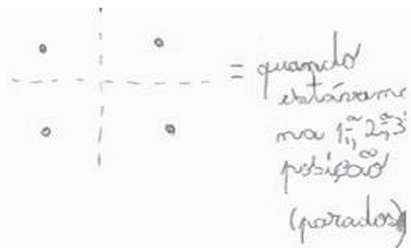 = quando
estávam
na 1ª, 2ª, 3ª
posição
(parados)